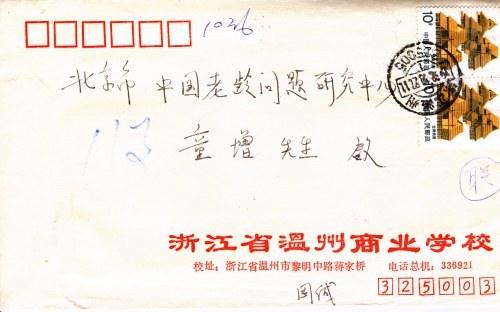 1026
北京市 中国老龄问题研究中心
113
童增 先生 啟
联
浙江省温州商业学校
校址：浙江省温州市黎明中路蒋家桥 电话总机：336921
325003